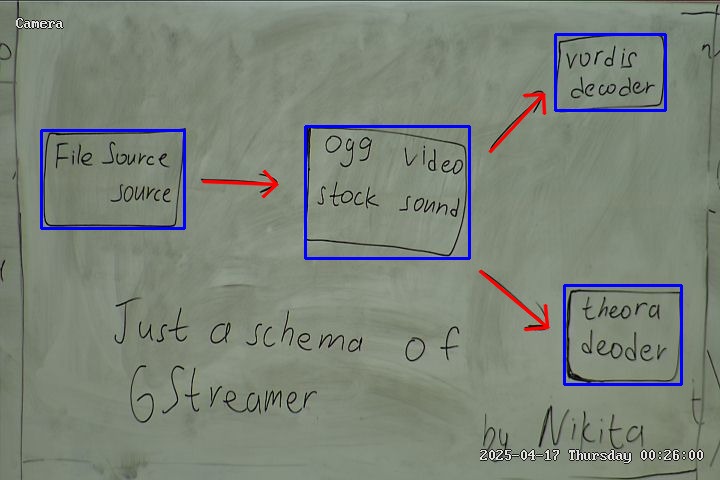 Camera
File Source
source
Ogg video
stock sound
vordis
decoder
theora
deoder
Just a schema of
GStreamer
by Nikita
2025-04-17 Thursday 00:26:00